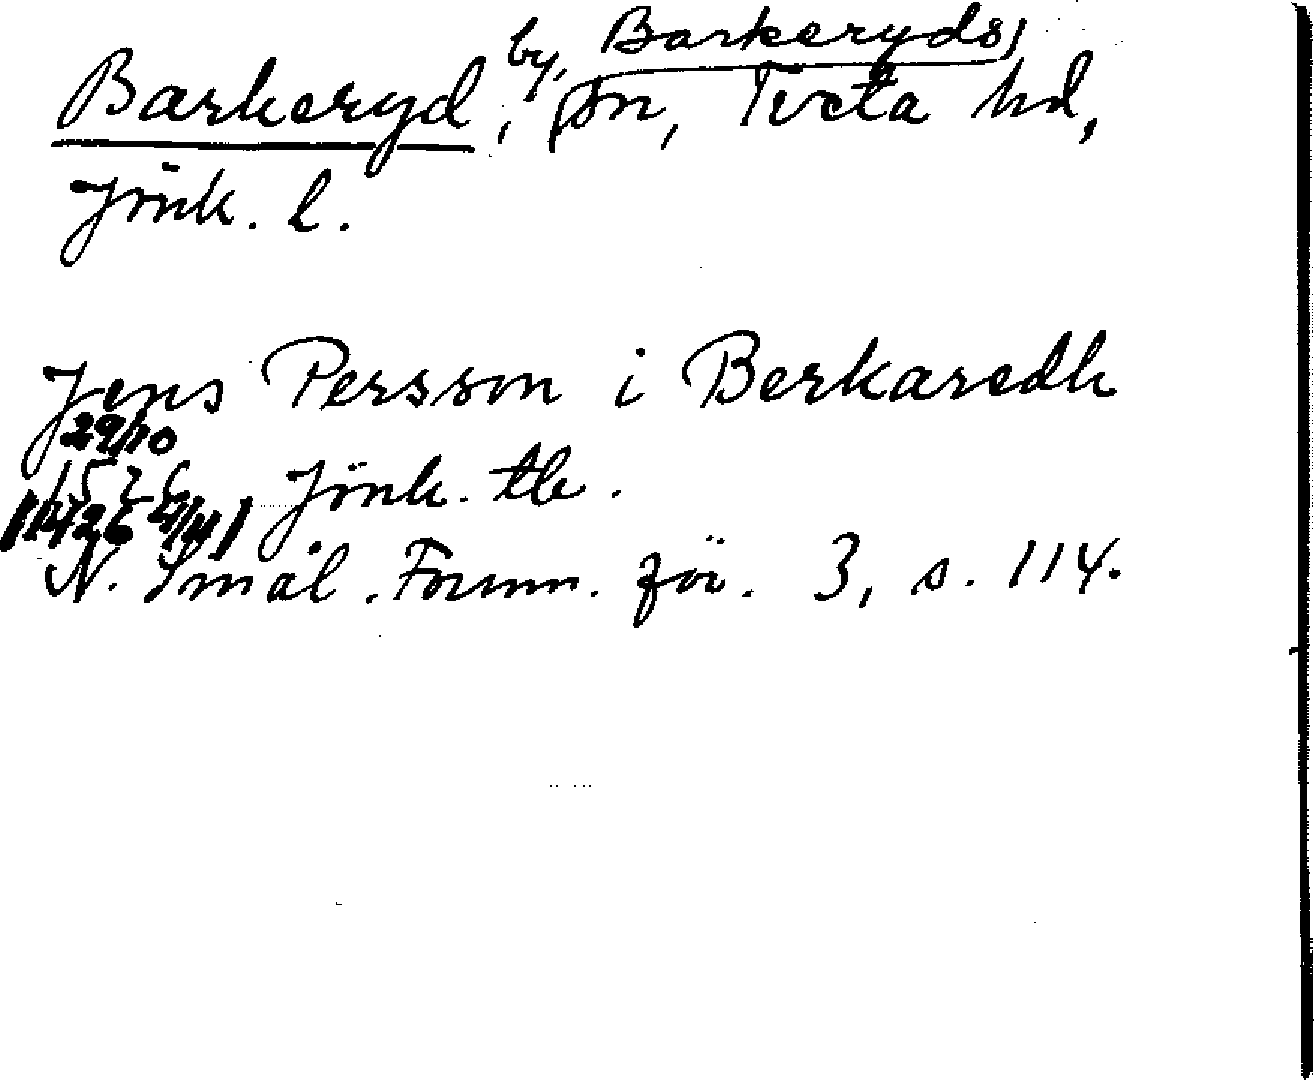 Barkeryd, by, Barkeryds
sn, Tveta hd,
Jönk. l.
Jens Persson i Berkaredh
29/10
1526 Jönk. tb.
N. Smål. Fornm. för. 3, s. 114.